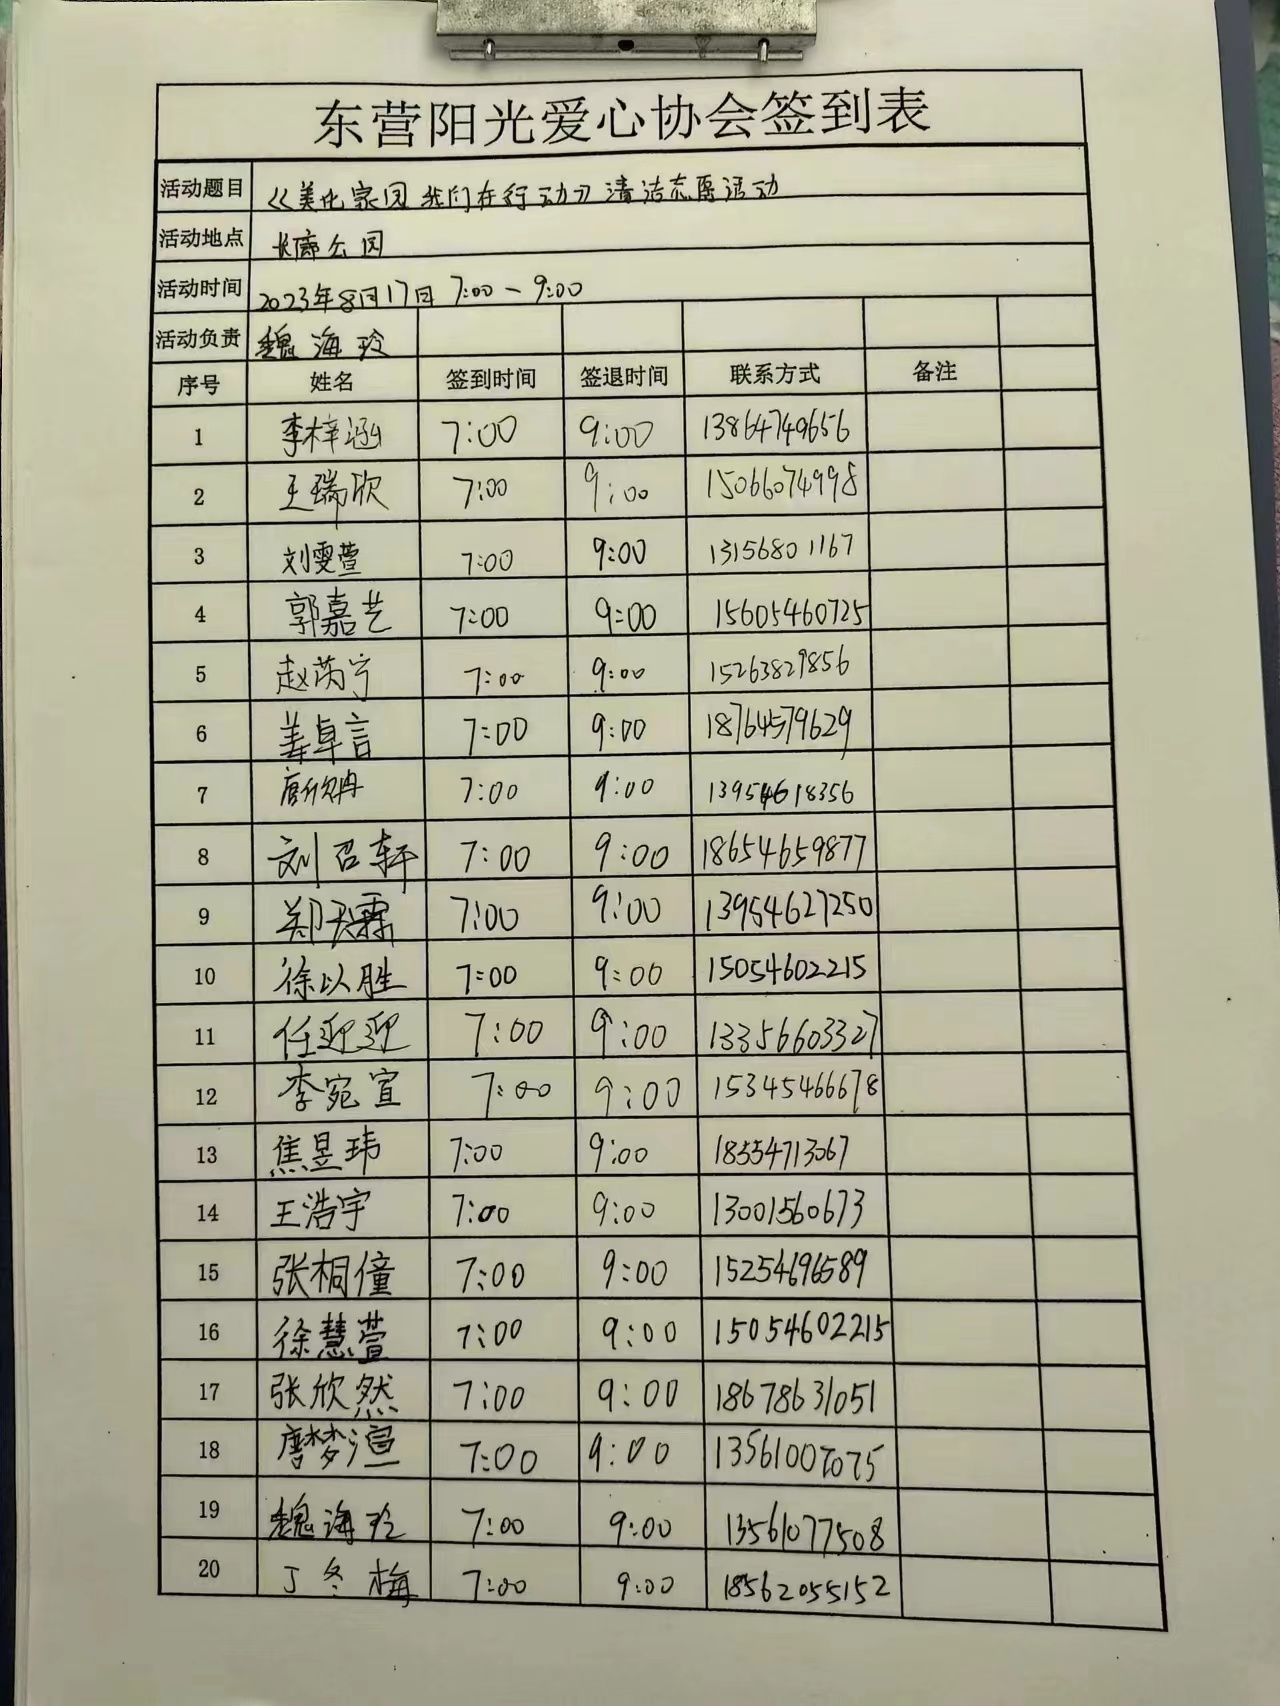 东营阳光爱心协会签到表
活动题目 《美化家园 我们在行动》清洁志愿活动
活动地点 长廊公园
活动时间 2023年8月17日 7:00-9:00
活动负责 魏海玲
序号 姓名 签到时间 签退时间 联系方式 备注
1 李梓涵 7:00 9:00 13864749656
2 王瑞欣 7:00 9:00 15066074998
3 刘雯萱 7:00 9:00 13156801167
4 郭嘉艺 7:00 9:00 15605460725
5 赵芮宁 7:00 9:00 15263829856
6 姜卓言 7:00 9:00 18764579629
7 唐欣冉 7:00 9:00 13954618356
8 刘召轩 7:00 9:00 18654659877
9 郑天霖 7:00 9:00 13954627250
10 徐以胜 7:00 9:00 15054602215
11 任迎迎 7:00 9:00 13356603327
12 李宛宣 7:00 9:00 15345466678
13 焦昱玮 7:00 9:00 18554713067
14 王浩宇 7:00 9:00 13001560673
15 张桐僮 7:00 9:00 15254696589
16 徐慧萱 7:00 9:00 15054602215
17 张欣然 7:00 9:00 18678631051
18 唐梦渲 7:00 9:00
19 魏海玲 7:00 9:00 13561077508
20 丁冬梅 7:00 9:00 18562055152